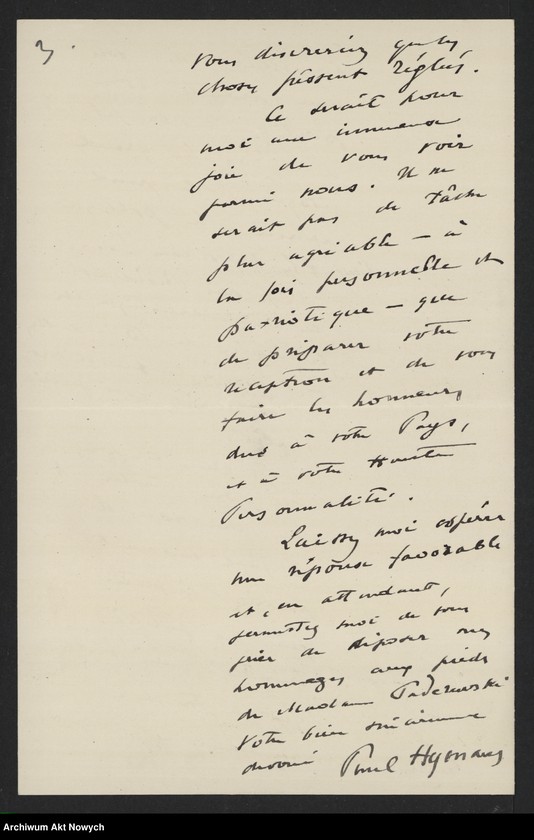 3.
vous désireriez que les
choses fussent réglées.
Ce serait pour
moi une immense
joie de vous voir
parmi nous. Il ne
serait pas de tâche
plus agréable — à
la fois personnelle et
patriotique — que
de préparer votre
réception et de vous
faire les honneurs
dus à votre Pays,
et à votre Haute
Personnalité.
Laissez moi espérer
une réponse favorable
et, en attendant,
permettez moi de vous
prier de déposer mes
hommages aux pieds
de Madame Paderewski
Votre bien sincèrement
dévoué Paul Hymans
Archiwum Akt Nowych